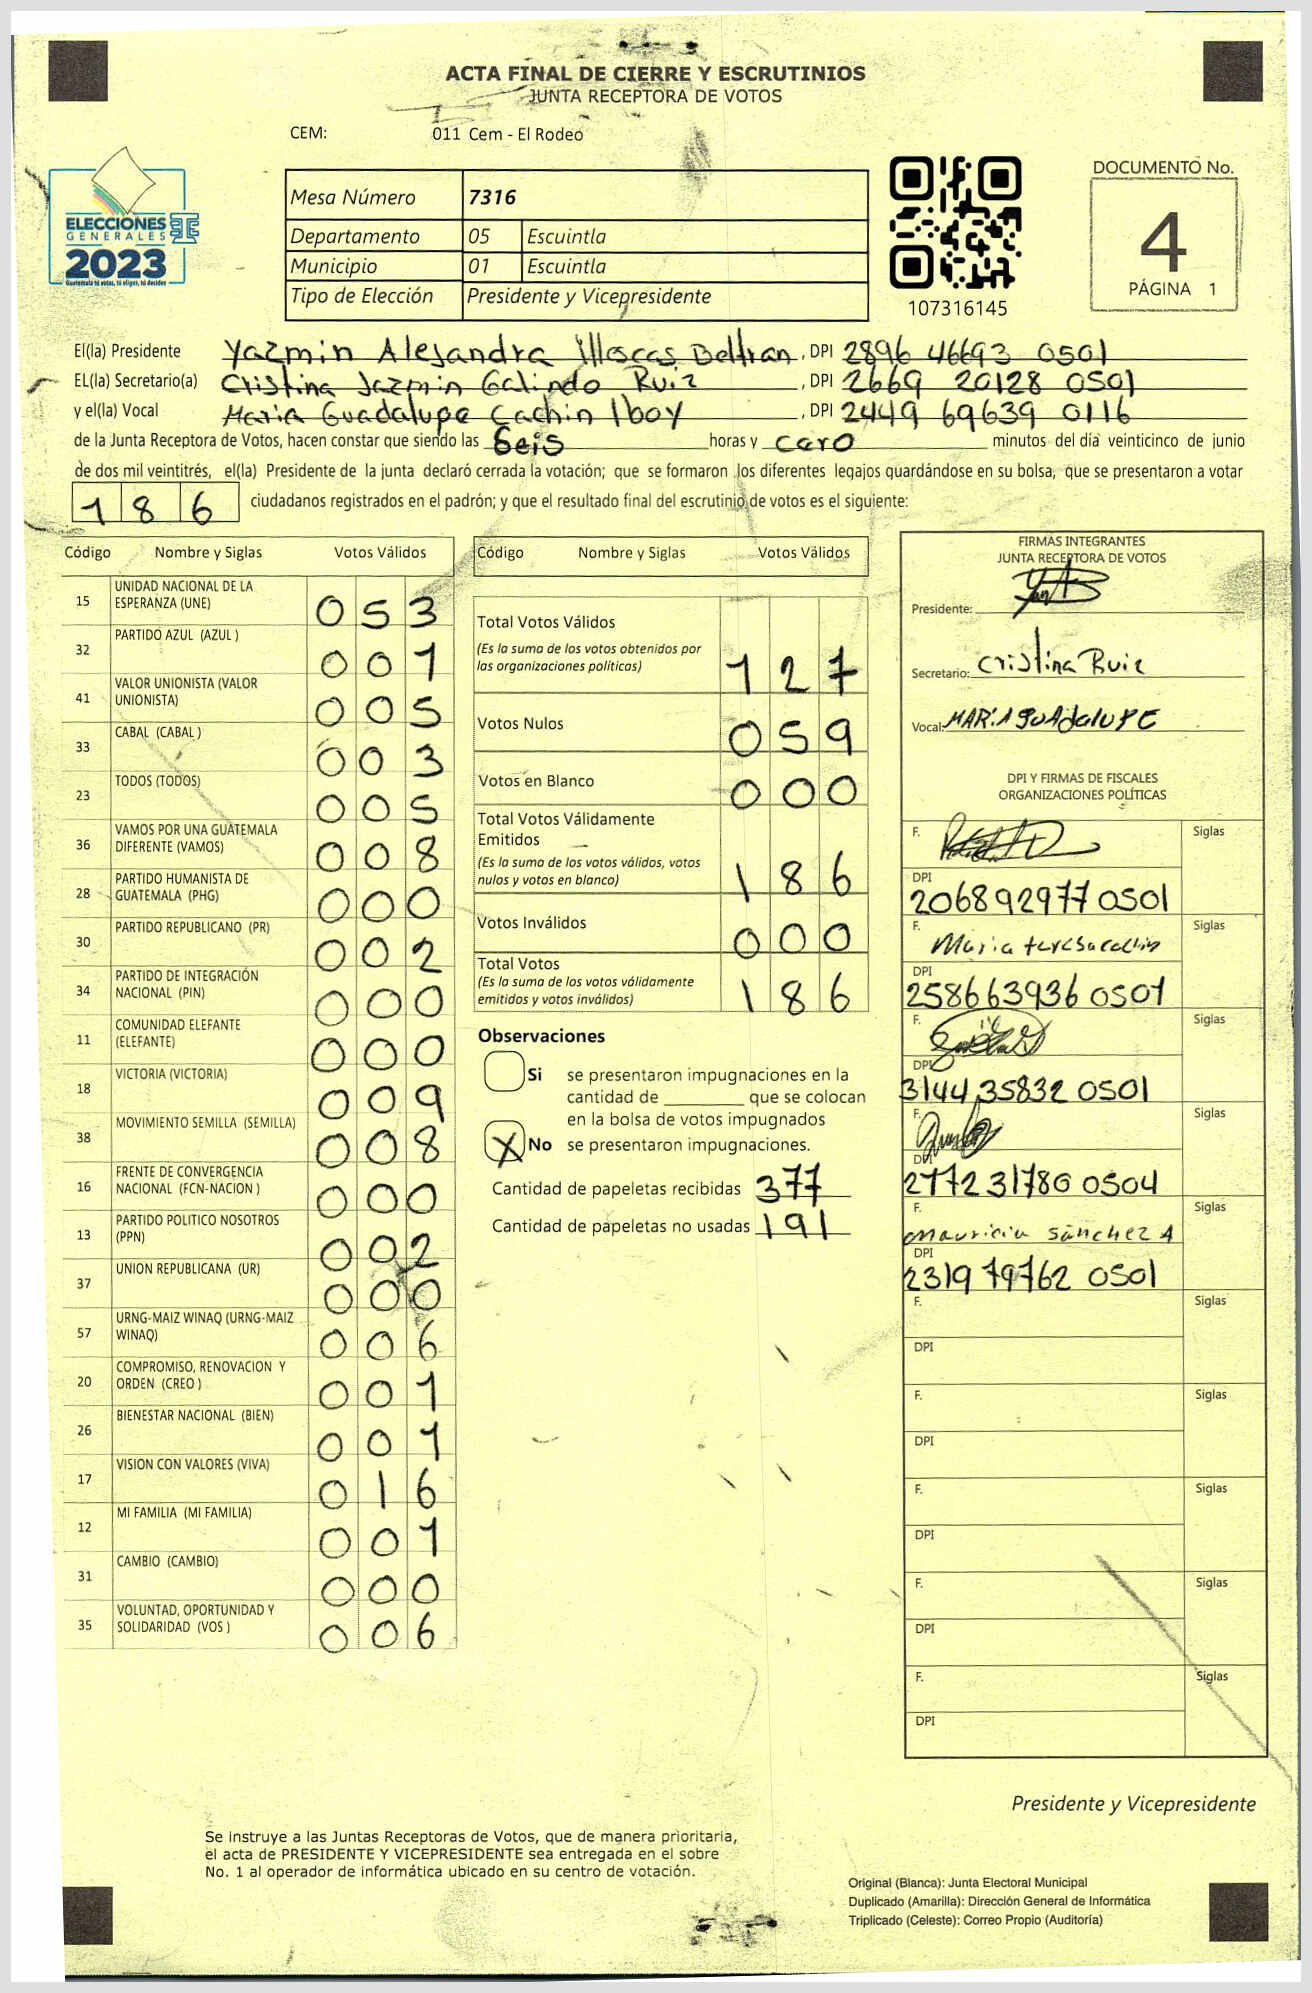 ACTA FINAL DE CIERRE Y ESCRUTINIOS
JUNTA RECEPTORA DE VOTOS
CEM: 011 Cem - El Rodeo
ELECCIONES
GENERALES
2023
Guatemala tú votas, tú eliges, tú decides
Mesa Número 7316
Departamento 05 Escuintla
Municipio 01 Escuintla
Tipo de Elección Presidente y Vicepresidente
107316145
DOCUMENTO No.
4
PÁGINA 1
El(la) Presidente Yazmin Alejandra Illescas Beltran, DPI 2896 46693 0501
EL(la) Secretario(a) Cristina Jazmin Galindo Ruiz, DPI 2669 20128 0501
y el(la) Vocal Maria Guadalupe Cachin Iboy, DPI 2449 69639 0116
de la Junta Receptora de Votos, hacen constar que siendo las Seis horas y cero minutos del día veinticinco de junio
de dos mil veintitrés, el(la) Presidente de la junta declaró cerrada la votación; que se formaron los diferentes legajos quardándose en su bolsa, que se presentaron a votar
186 ciudadanos registrados en el padrón; y que el resultado final del escrutinio de votos es el siguiente:
Código Nombre y Siglas Votos Válidos
15 UNIDAD NACIONAL DE LA ESPERANZA (UNE) 053
32 PARTIDO AZUL (AZUL ) 001
41 VALOR UNIONISTA (VALOR UNIONISTA) 005
33 CABAL (CABAL ) 003
23 TODOS (TODOS) 005
36 VAMOS POR UNA GUATEMALA DIFERENTE (VAMOS) 008
28 PARTIDO HUMANISTA DE GUATEMALA (PHG) 000
30 PARTIDO REPUBLICANO (PR) 002
34 PARTIDO DE INTEGRACIÓN NACIONAL (PIN) 000
11 COMUNIDAD ELEFANTE (ELEFANTE) 000
18 VICTORIA (VICTORIA) 009
38 MOVIMIENTO SEMILLA (SEMILLA) 008
16 FRENTE DE CONVERGENCIA NACIONAL (FCN-NACION ) 000
13 PARTIDO POLITICO NOSOTROS (PPN) 002
37 UNION REPUBLICANA (UR) 000
57 URNG-MAIZ WINAQ (URNG-MAIZ WINAQ) 006
20 COMPROMISO, RENOVACION Y ORDEN (CREO ) 001
26 BIENESTAR NACIONAL (BIEN) 001
17 VISION CON VALORES (VIVA) 016
12 MI FAMILIA (MI FAMILIA) 001
31 CAMBIO (CAMBIO) 000
35 VOLUNTAD, OPORTUNIDAD Y SOLIDARIDAD (VOS ) 006
Código Nombre y Siglas Votos Válidos
Total Votos Válidos 127
(Es la suma de los votos obtenidos por
las organizaciones políticas)
Votos Nulos 059
Votos en Blanco 000
Total Votos Válidamente
Emitidos 186
(Es la suma de los votos válidos, votos
nulos y votos en blanco)
Votos Inválidos 000
Total Votos 186
(Es la suma de los votos válidamente
emitidos y votos inválidos)
Observaciones
Si se presentaron impugnaciones en la
cantidad de ________ que se colocan
en la bolsa de votos impugnados
X No se presentaron impugnaciones.
Cantidad de papeletas recibidas 377
Cantidad de papeletas no usadas 191
FIRMAS INTEGRANTES
JUNTA RECEPTORA DE VOTOS
Presidente:
Secretario: Cristina Ruiz
Vocal: MARIA GUADALUPE
DPI Y FIRMAS DE FISCALES
ORGANIZACIONES POLÍTICAS
F. Siglas
DPI 206892977 0501
F. Maria teresa Siglas
DPI 258663936 0501
F. Siglas
DPI 3144 35832 0501
F. Siglas
DPI 2772 31780 0504
F. Mauricio Sánchez A Siglas
DPI 2319 79762 0501
F. Siglas
DPI
F. Siglas
DPI
F. Siglas
DPI
F. Siglas
DPI
F. Siglas
DPI
Presidente y Vicepresidente
Se instruye a las Juntas Receptoras de Votos, que de manera prioritaria,
el acta de PRESIDENTE Y VICEPRESIDENTE sea entregada en el sobre
No. 1 al operador de informática ubicado en su centro de votación.
Original (Blanca): Junta Electoral Municipal
Duplicado (Amarilla): Dirección General de Informática
Triplicado (Celeste): Correo Propio (Auditoría)